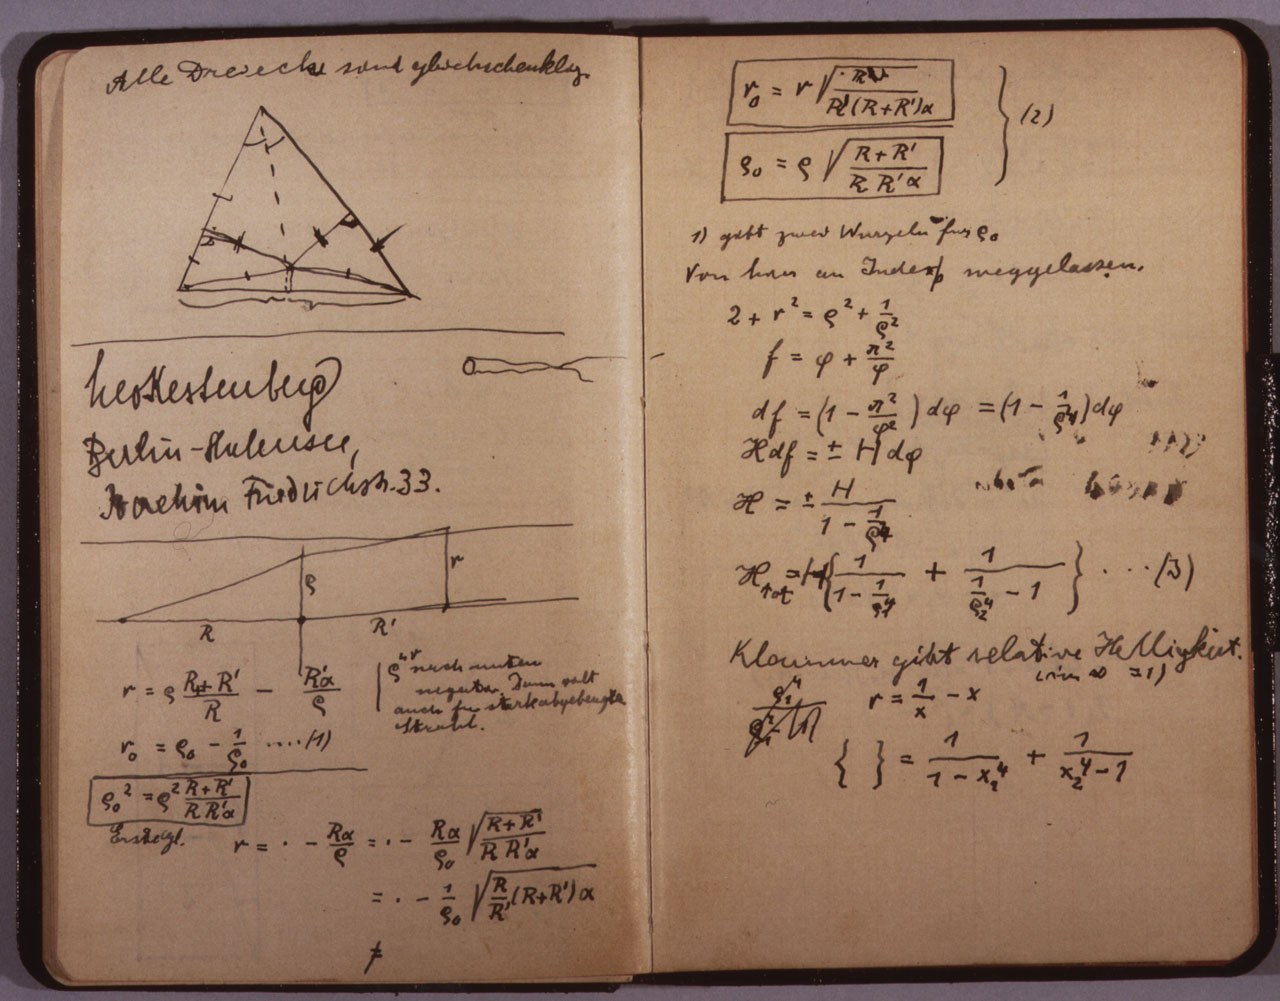 Alle Dreiecke sind gleichschenklig.
Leo Kestenberg
Berlin-Halensee,
Joachim Friedrichstr. 33.
ρ
r
R
R'
r = ρ (R+R')/R − R'α/ρ
ρ nach unten
negativ. Dann gilt
auch für stark abgebeugten
Strahl.
r₀ = ρ₀ − 1/ρ₀ ....(1)
ρ₀² = ρ² (R+R')/(R R'α)
r = · − Rα/ρ = · − Rα/ρ₀ √((R+R')/(R R'α))
= · − 1/ρ₀ √(R/R' (R+R')α)
r₀ = r √( /(R'(R+R')α))
ρ₀ = ρ √((R+R')/(R R'α))
(2)
1) gibt zwei Wurzeln für ρ₀
Von hier an Index weggelassen.
2 + r² = ρ² + 1/ρ²
f = φ + π²/φ
df = (1 − π²/φ²) dφ = (1 − 1/ρ⁴) dφ
ℋ df = ± H dφ
ℋ = ± H/(1 − 1/ρ⁴)
ℋtot = H{1/(1 − 1/ρ₁⁴) + 1/(1/ρ₂⁴ − 1)} ... (3)
Klammer gibt relative Helligkeit.
(in ∞ = 1)
r = 1/x − x
{ } = 1/(1 − x₁⁴) + 1/(x₂⁴ − 1)